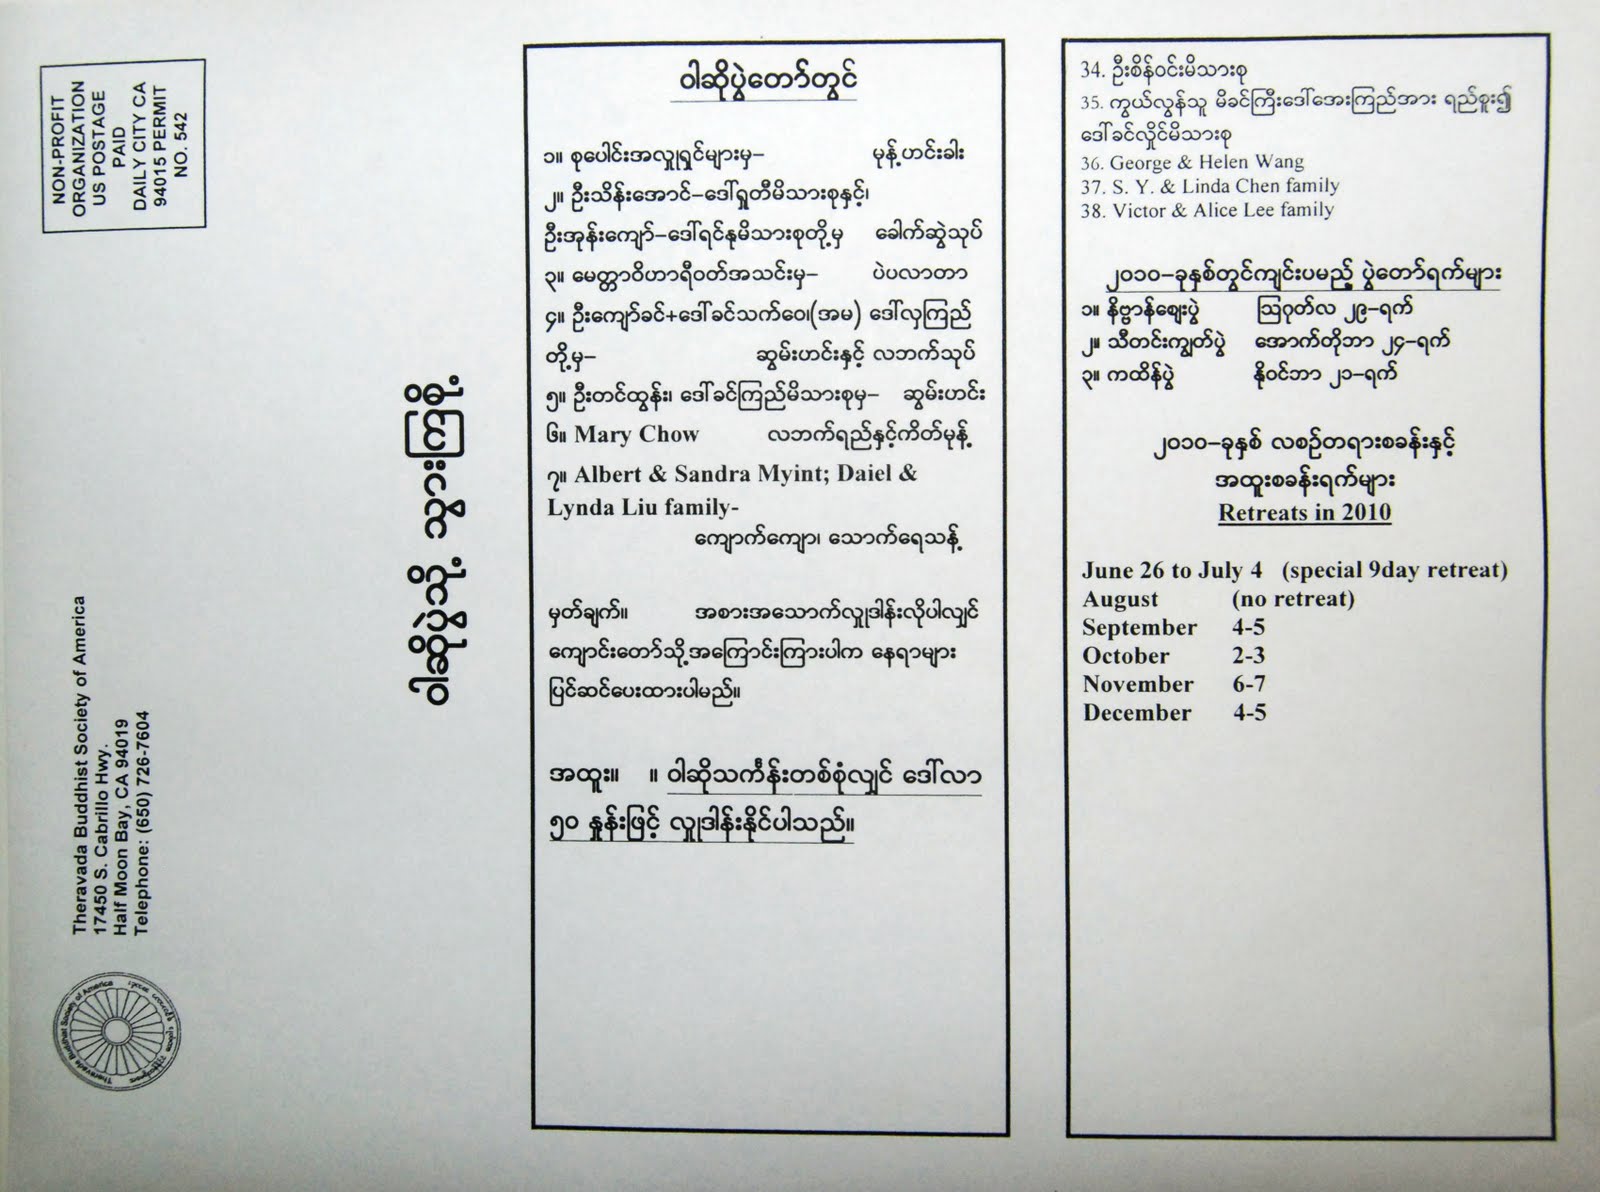 NON-PROFIT
ORGANIZATION
US POSTAGE
PAID
DAILY CITY CA
94015 PERMIT
NO. 542
Theravada Buddhist Society of America
17450 S. Cabrillo Hwy.
Half Moon Bay, CA 94019
Telephone: (650) 726-7604
Theravada Buddhist Society of America
ဝါဆိုပွဲသို့ သွားကြစို့
ဝါဆိုပွဲတော်တွင်
၁။ စုပေါင်းအလှူရှင်များမှ– မုန့်ဟင်းခါး
၂။ ဦးသိန်းအောင်–ဒေါ်ရှုတီမိသားစုနှင့်၊
ဦးအုန်းကျော်–ဒေါ်ရင်နုမိသားစုတို့မှ ခေါက်ဆွဲသုပ်
၃။ မေတ္တာဝိဟာရီဝတ်အသင်းမှ– ပဲပလာတာ
၄။ ဦးကျော်ခင်+ဒေါ်ခင်သက်ဝေ၊(အမ) ဒေါ်လှကြည်
တို့မှ– ဆွမ်းဟင်းနှင့် လဘက်သုပ်
၅။ ဦးတင်ထွန်း၊ ဒေါ်ခင်ကြည်မိသားစုမှ– ဆွမ်းဟင်း
၆။ Mary Chow လဘက်ရည်နှင့်ကိတ်မုန့်
၇။ Albert & Sandra Myint; Daiel &
Lynda Liu family-
ကျောက်ကျော၊ သောက်ရေသန့်
မှတ်ချက်။ အစားအသောက်လှူဒါန်းလိုပါလျှင်
ကျောင်းတော်သို့အကြောင်းကြားပါက နေရာများ
ပြင်ဆင်ပေးထားပါမည်။
အထူး။ ။ ဝါဆိုသင်္ကန်းတစ်စုံလျှင် ဒေါ်လာ
၅၀ နှုန်းဖြင့် လှူဒါန်းနိုင်ပါသည်။
34. ဦးစိန်ဝင်းမိသားစု
35. ကွယ်လွန်သူ မိခင်ကြီးဒေါ်အေးကြည်အား ရည်စူး၍
ဒေါ်ခင်လှိုင်မိသားစု
36. George & Helen Wang
37. S. Y. & Linda Chen family
38. Victor & Alice Lee family
၂၀၁၀–ခုနှစ်တွင်ကျင်းပမည့် ပွဲတော်ရက်များ
၁။ နိဗ္ဗာန်ဈေးပွဲ ဩဂုတ်လ ၂၉–ရက်
၂။ သီတင်းကျွတ်ပွဲ အောက်တိုဘာ ၂၄–ရက်
၃။ ကထိန်ပွဲ နိုဝင်ဘာ ၂၁–ရက်
၂၀၁၀–ခုနှစ် လစဉ်တရားစခန်းနှင့်
အထူးစခန်းရက်များ
Retreats in 2010
June 26 to July 4 (special 9day retreat)
August (no retreat)
September 4-5
October 2-3
November 6-7
December 4-5